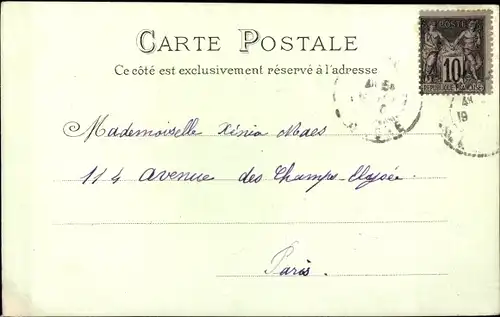 POSTE
10
REPUBLIQUE FRANÇAISE
CARTE POSTALE
Ce côté est exclusivement réservé à l'adresse
Mademoiselle Xénia Maes
114 avenue des Champs-Elysée
Paris.